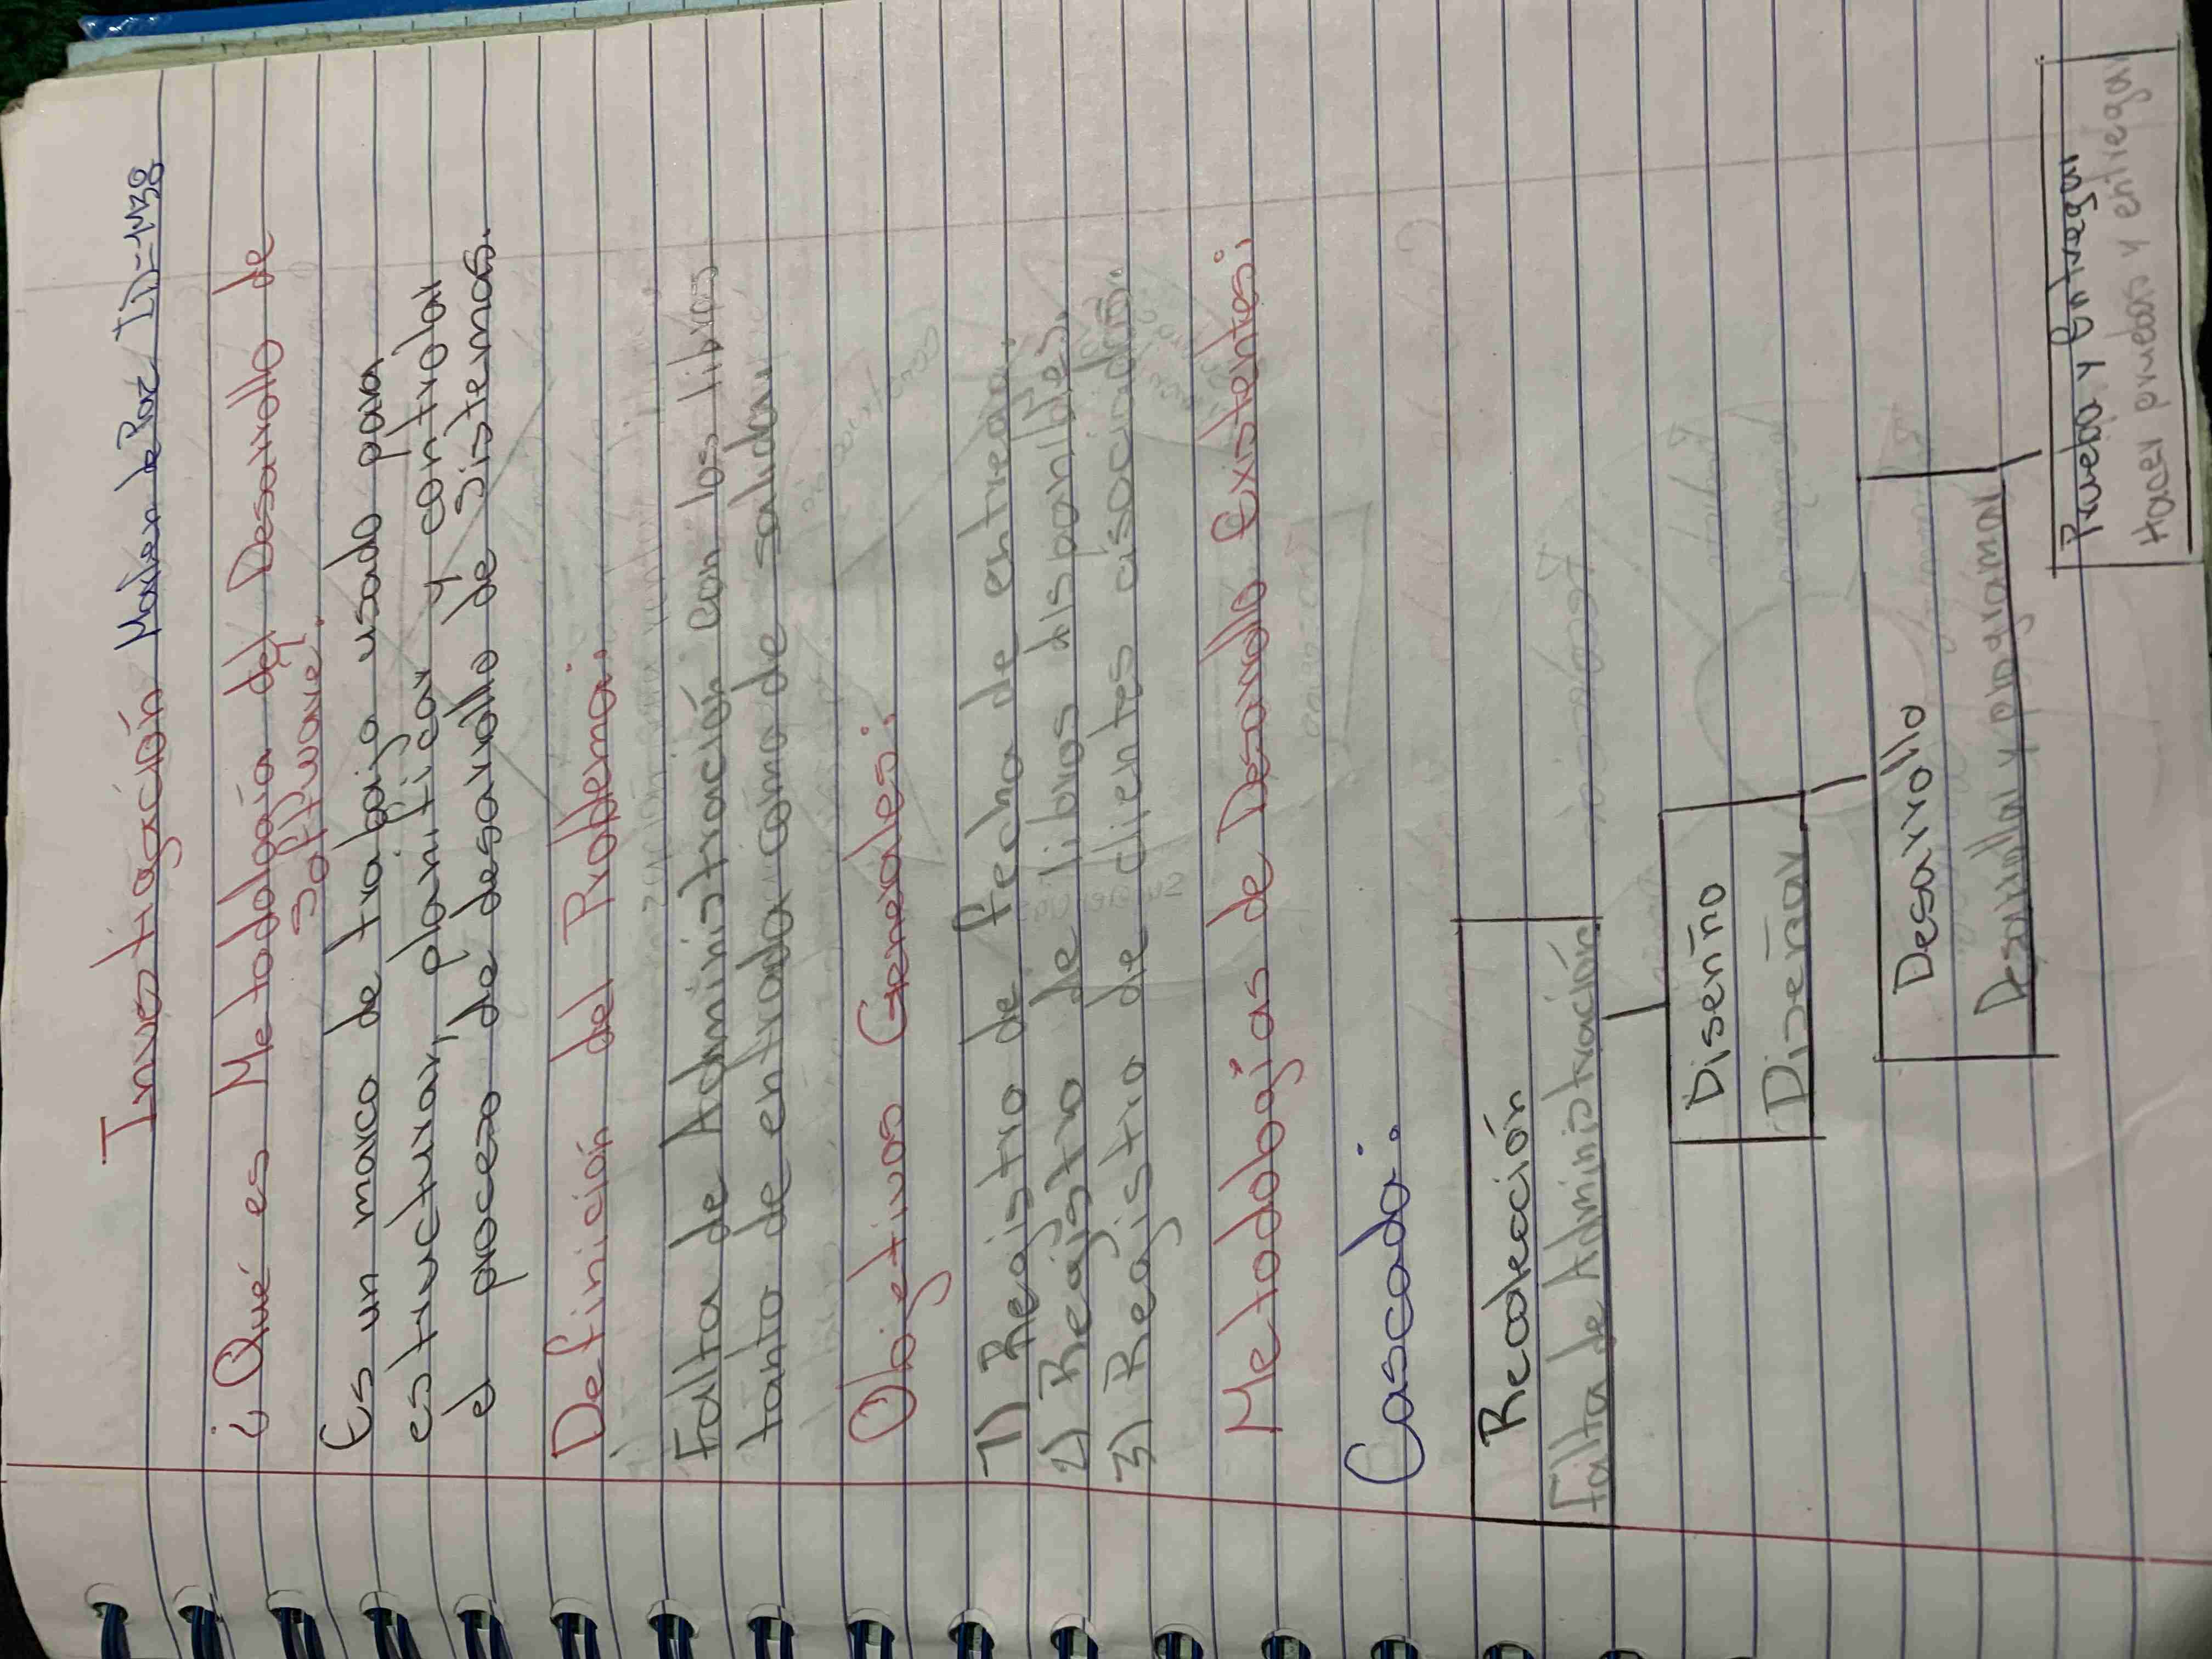 Investigación Madian de Paz ID=1138
¿Qué es Metodología del Desarrollo de
Software?
Es un marco de trabajo usado para
estructurar, planificar y control
el proceso de desarrollo de sistemas.
Definición del Problema:
Falta de Administración con los libros
tanto de entrada como de salida.
Objetivos Generales:
1) Registro de fecha de entrega.
2) Registro de libros disponibles.
3) Registro de clientes asociados.
Metodologías de Desarrollo Existentes:
Cascada:
Recolección
Falta de Administración
Diseño
Diseñar
Desarrollo
Desarrollar y programar
Prueba y Entregar
Hacer pruebas y entregar